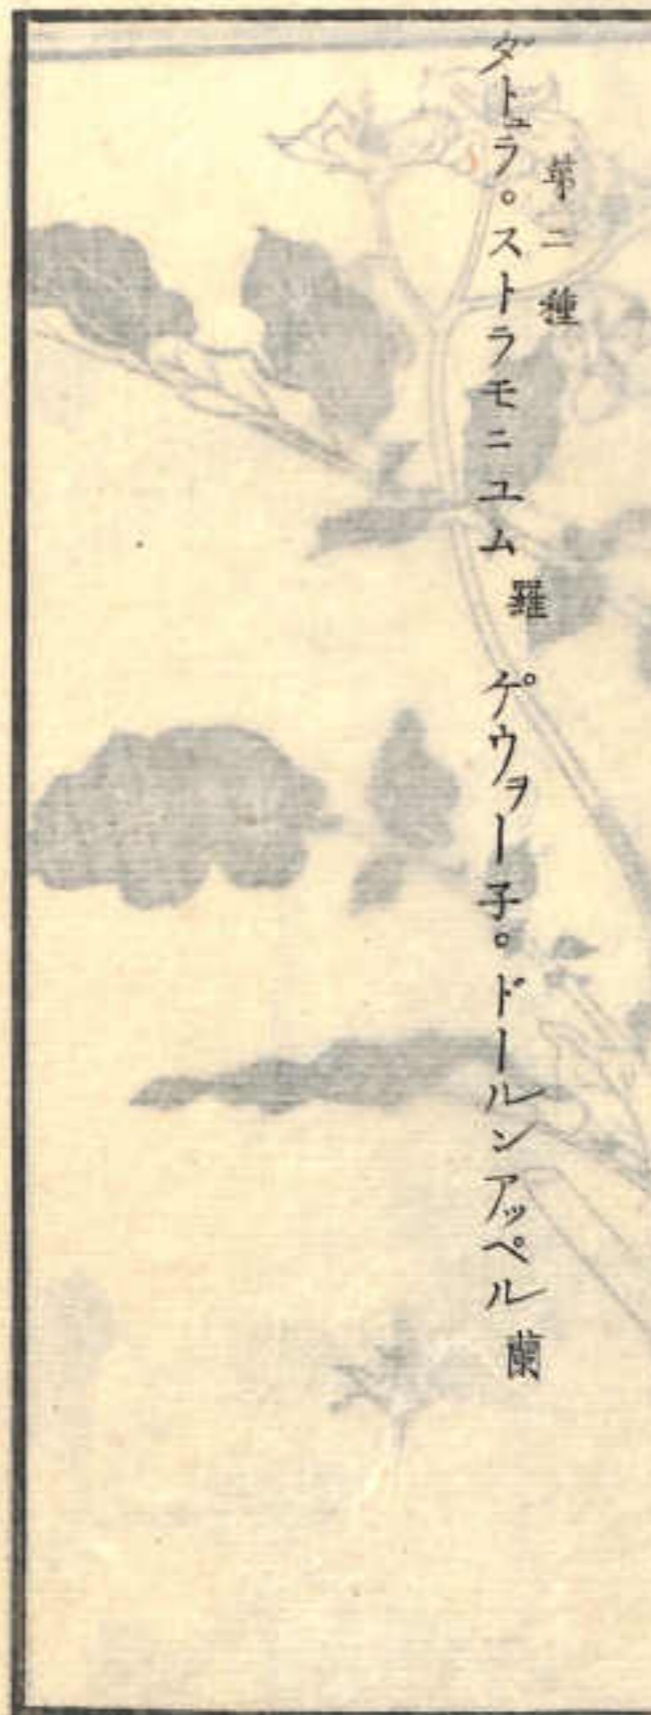 第二種
ダトュラ。ストラモニユム 羅 ゲウヲー子。ドールンアッペル 蘭